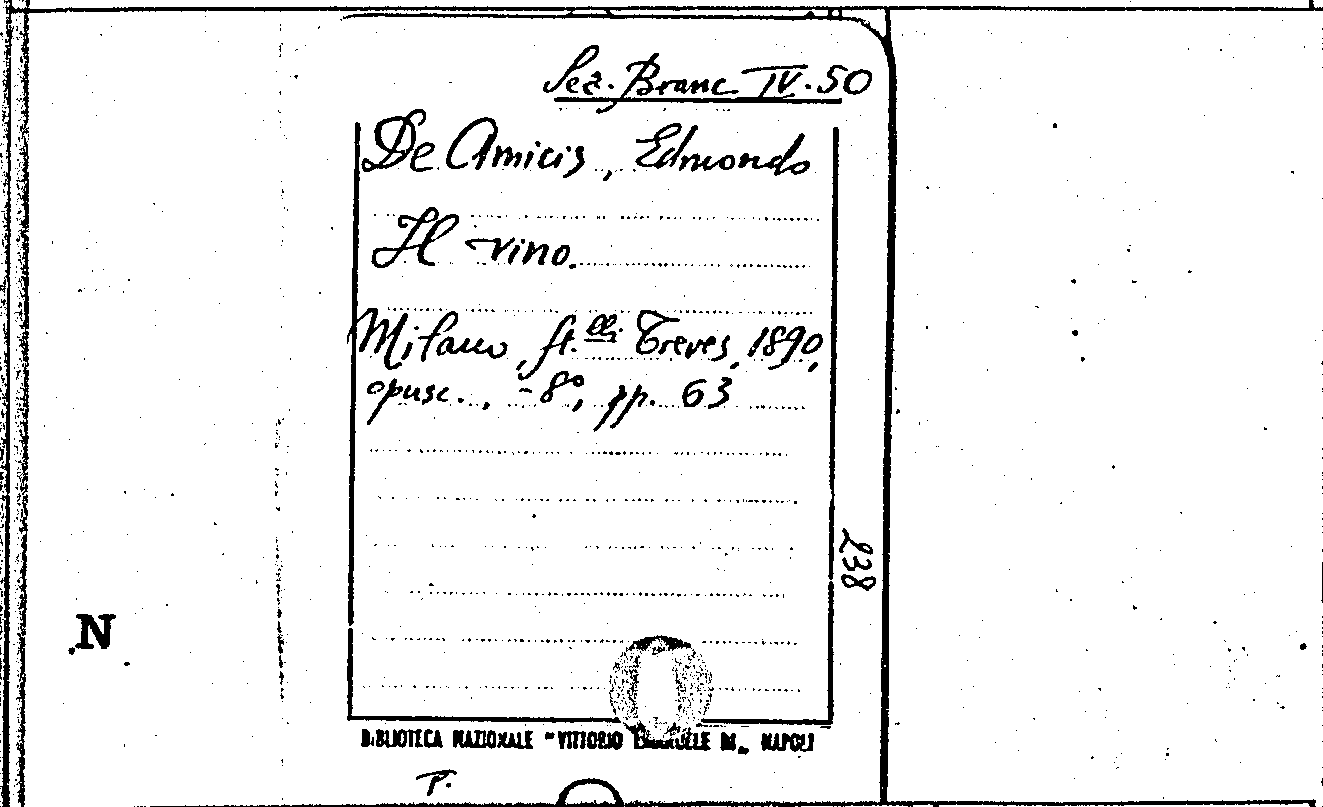 Sez. Branc. IV. 50
De Amicis, Edmondo
Il vino.
Milano, ft.lli Treves, 1890,
opusc., -8°, pp. 63
238
N
BIBLIOTECA NAZIONALE "VITTORIO EMANUELE III„ NAPOLI
T.